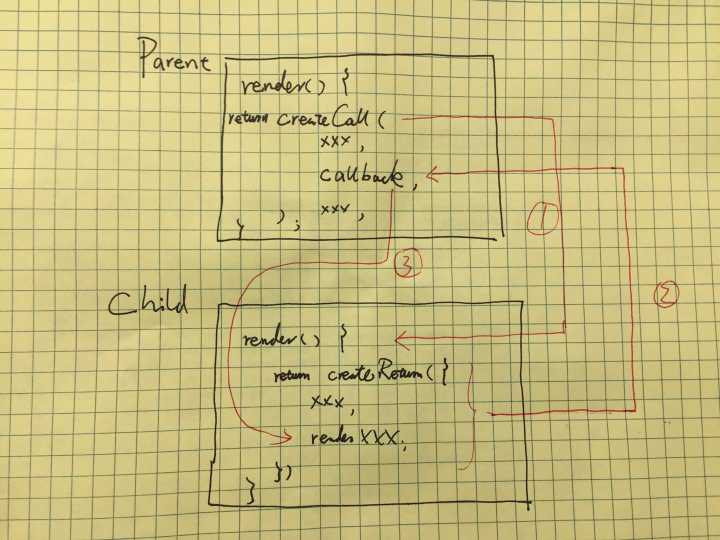 Parent
render() {
return createCall (
xxx,
callback,
xxx,
);
}
①
③
②
Child
render() {
return createReturn({
xxx,
render XXX,
})
}